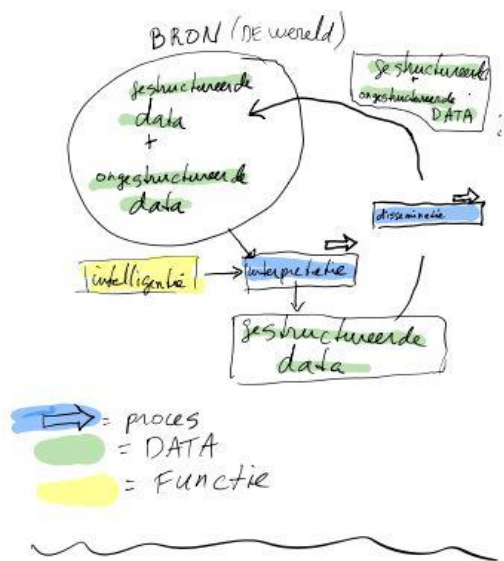 BRON (DE wereld)
gestructureerde
data
+
ongestructureerde
data
gestructureerde
+
ongestructureerde
DATA
disseminatie
intelligentie
interpretatie
gestructureerde
data
= proces
= DATA
= Functie